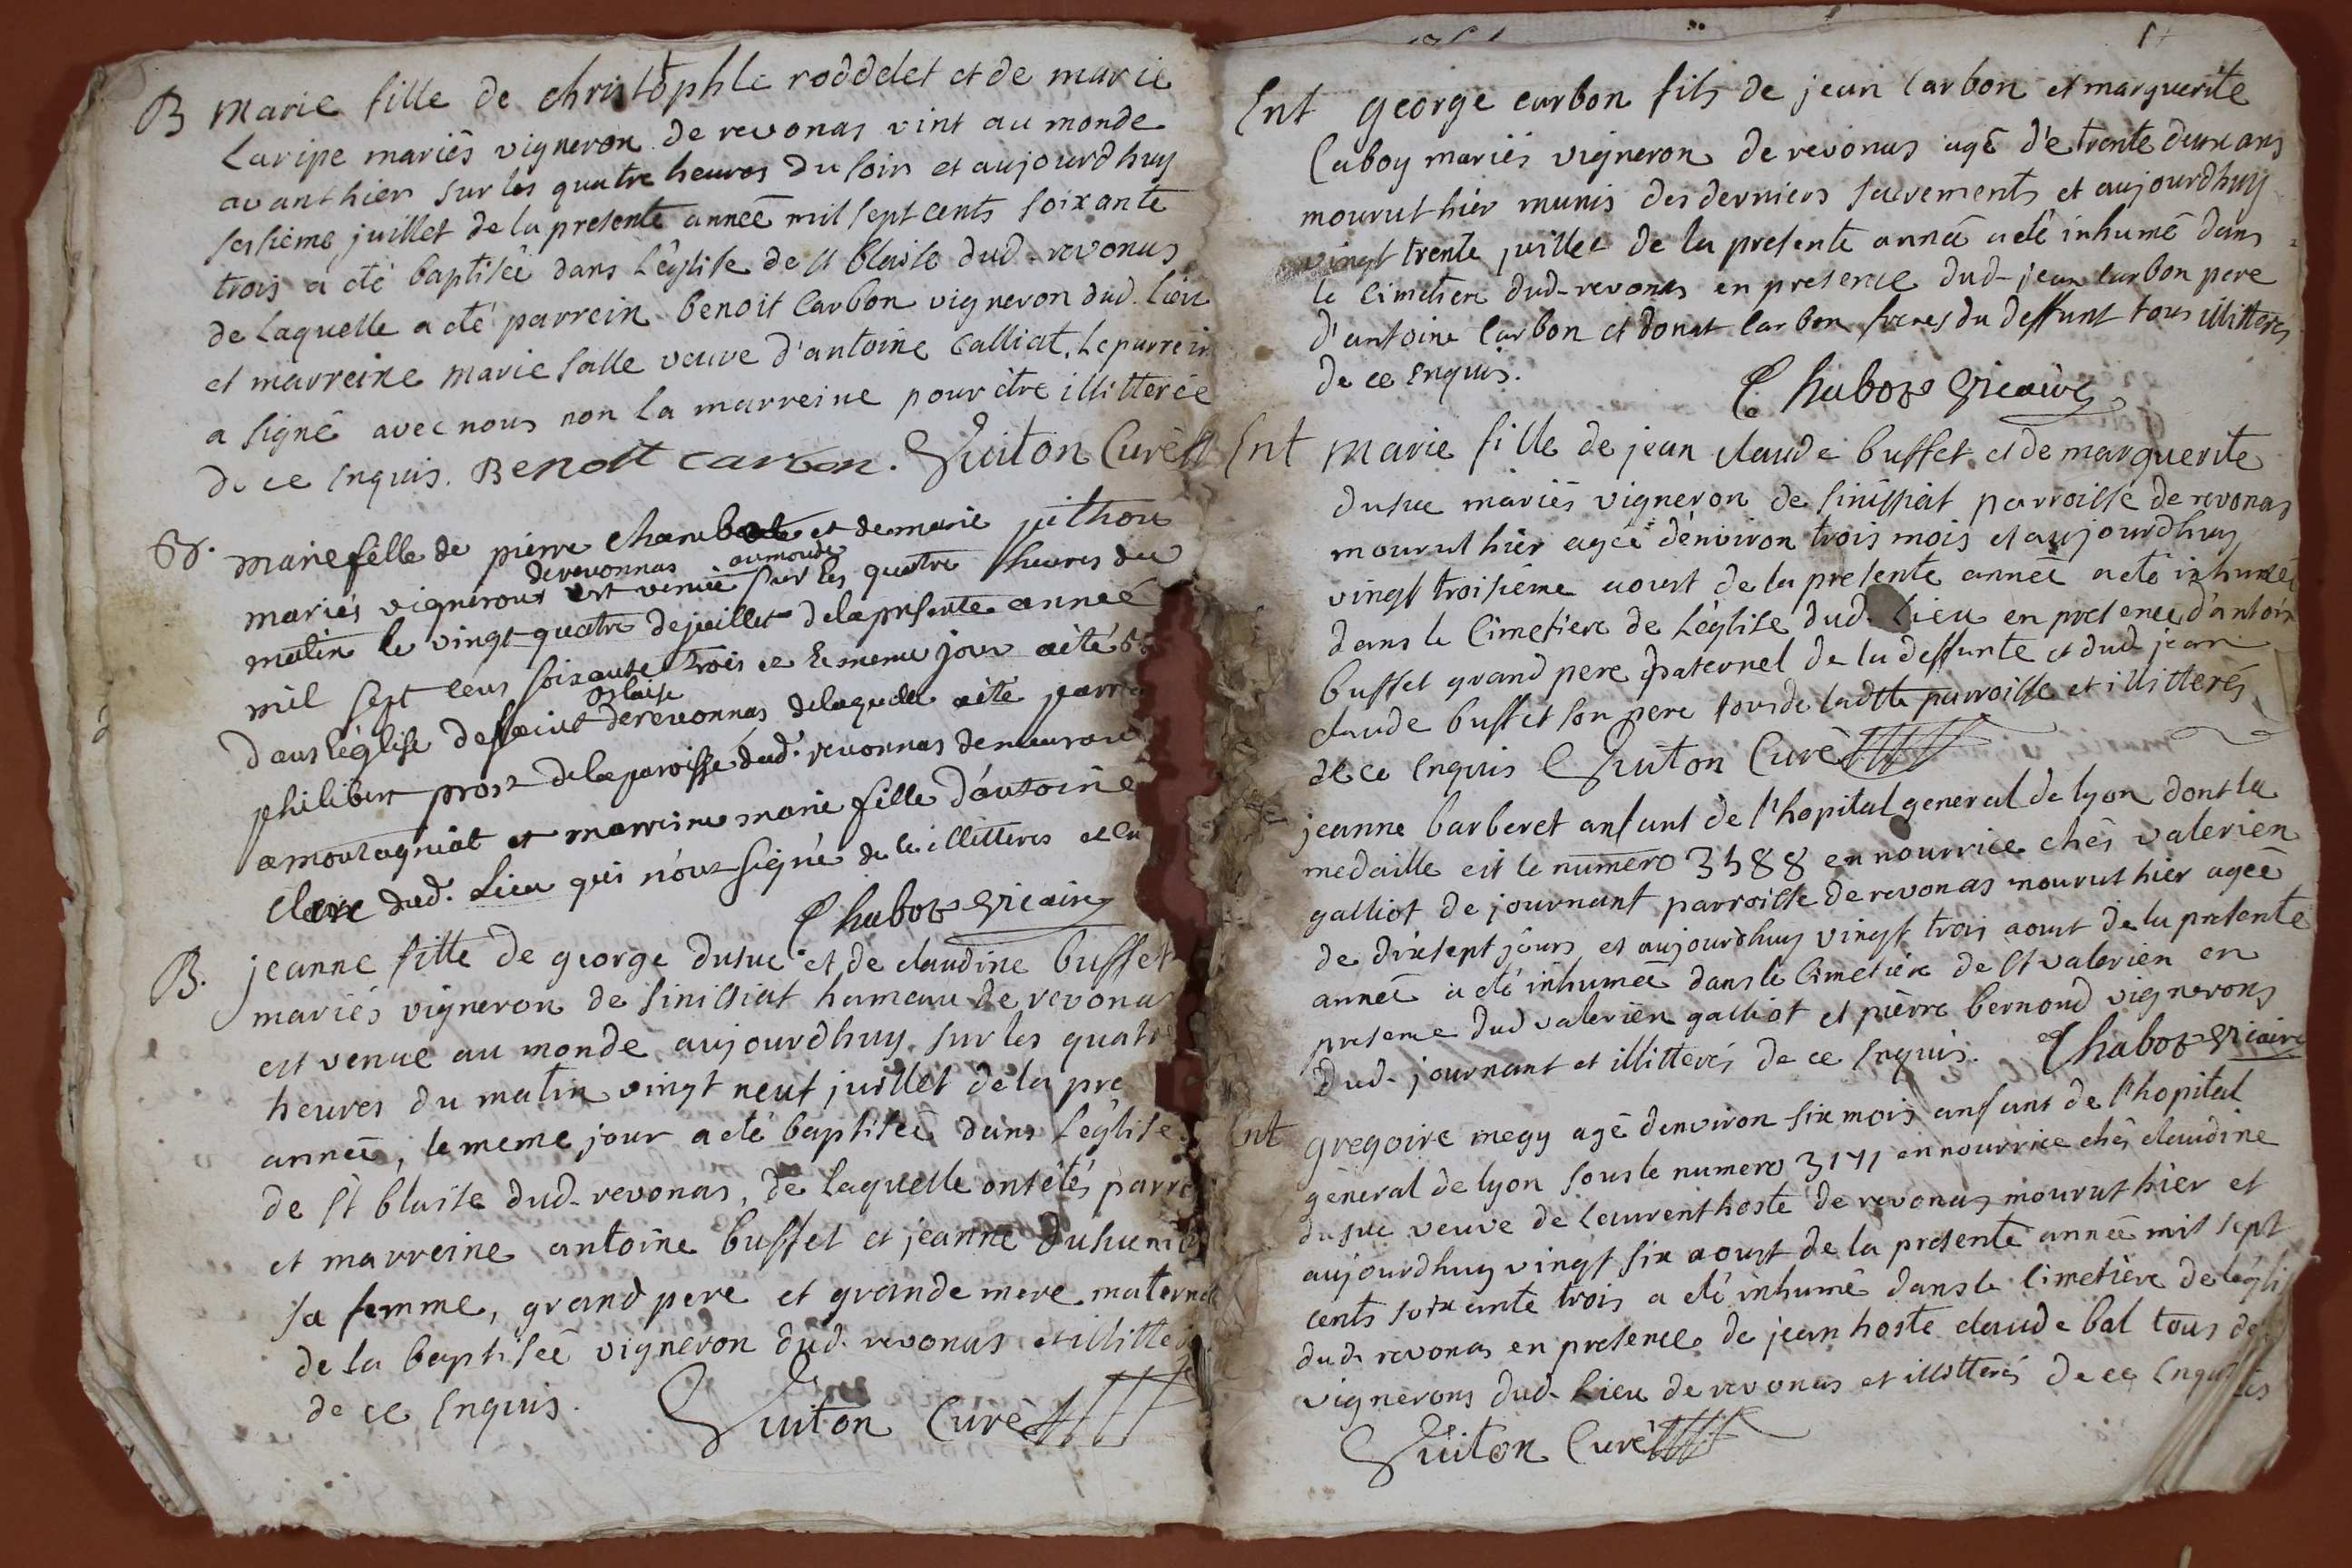 B Marie fille de christophle roddelet et de marie
Laripe mariés vigneron de revonas vint au monde
avanthier sur les quatre heures du soir et aujourdhuy
sesieme juillet de la presente année mil sept cents soixante
trois a été baptisée dans l'église de st blaise dud. revonas
de laquelle a été parrein benoit Carbon vigneron dud. lieu
et marreine marie salle veuve d'antoine Calliat, le parrein
a signé avec nous non la marreine pour être illitterée
de ce enquis. Benoit carbon. Guiton Curé
B. marie fille de pierre chanub et de marie pithou
mariés vignerons de revonnas est venue au monde sur les quatre heures du
matin le vingt quatre de juillet de la presente année
mil sept cens soixante trois et le meme jour a été
dans l'église de saint blaise de revonnas de laquelle a été parrein
philibert prost de la paroisse dud. revonnas demeurant
a montagniat et marreine marie fille d'antoine
clere dud. lieu qui n'ont signé de ce illitteres
Chaboz vicaire
B. jeanne fille de george dusuc et de claudine buffet
mariés vigneron de sinissiat hameau de revonas
est venue au monde aujourdhuy sur les quatre
heures du matin vingt neuf juillet de la pre
année, le meme jour a été baptisée dans l'église
de st blaise dud. revonas, de laquelle ont étés parrein
et marreine antoine buffet et jeanne dusuc
sa femme, grand pere et grande mere maternels
de la baptisée vigneron dud. revonas et illitterés
de ce enquis. Guiton Curé
Ent george carbon fils de jean Carbon et marguerite
Caboy mariés vigneron de revonas agé de trente deux ans
mourut hier munis des derniers sacrements et aujourdhuy
vingt trente juillet de la presente année a été inhumé dans
le cimetiere dud. revonas en presence dud. jean carbon pere
d'antoine Carbon et donat carbon freres du deffunt tous illitterés
de ce enquis. Chaboz vicaire
Ent Marie fille de jean claude buffet et de marguerite
dusuc mariés vigneron de sinissiat parroisse de revonas
mourut hier agée d'environ trois mois et aujourdhuy
vingt troisième aoust de la presente année a été inhumée
dans le Cimetiere de l'église dud. lieu en presence d'antoine
buffet grand pere paternel de la deffunte et dud. jean
claude buffet son pere tous de ladtte parroisse et illitterés
de ce enquis Guiton Curé
jeanne barberet anfant de l'hopital general de lyon dont la
medaille est le numero 3588 en nourrice chés valerien
galliot de journant parroisse de revonas mourut hier agée
de dixsept jours et aujourdhuy vingt trois aoust de la presente
année a été inhumée dans le Cimetiere de st valerien en
presence dud valerien galliot et pierre bernoud vignerons
dud. journant et illitterés de ce enquis. Chaboz vicaire
Ent gregoire megy agé denviron six mois anfant de l'hopital
general de lyon sous le numero 3171 en nourrice chés claudine
dusuc veuve de Laurent hoste de revonas mourut hier et
aujourdhuy vingt six aoust de la presente année mil sept
cents soixante trois a été inhumé dans le cimetière de l'égli
dud. revonas en presence de jean hoste claude bal tous de
vignerons dud. lieu de revonas et illitterés de ce enquis
Guiton Curé